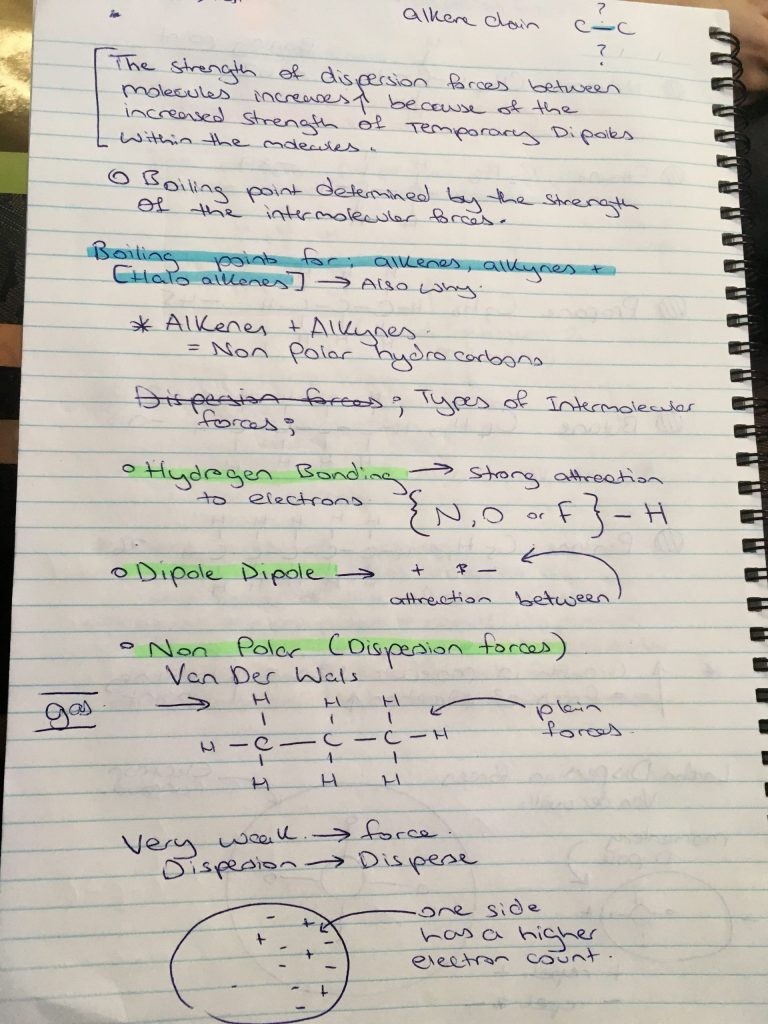 alkene chain C-C
?
?
The strength of dispersion forces between
molecules increases ↑ because of the
increased strength of Temporary Dipoles
within the molecules.
o Boiling point determined by the strength
of the intermolecular forces.
Boiling points for: alkenes, alkynes +
[Halo alkenes] → Also why.
* Alkenes + Alkynes.
= Non Polar hydrocarbons
Dispersion forces; Types of Intermolecular
forces;
o Hydrogen Bonding → strong attraction
to electrons {N, O or F} - H
o Dipole Dipole → + $ -
attraction between
o Non Polar (Dispersion forces)
Van Der Wals
gas → H H H plain
H - C - C - C - H forces.
H H H
Very weak → force.
Dispesion → Disperse
one side
has a higher
electron count.